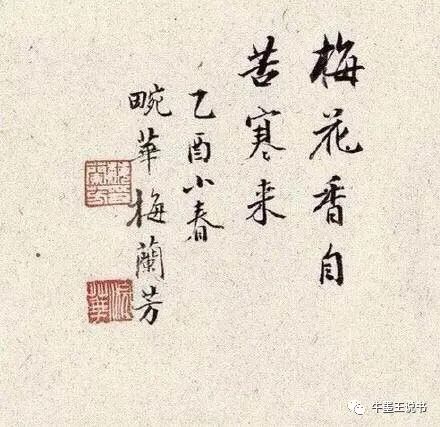 梅花香自
苦寒来
乙酉小春
畹華梅蘭芳
牛墨王说书